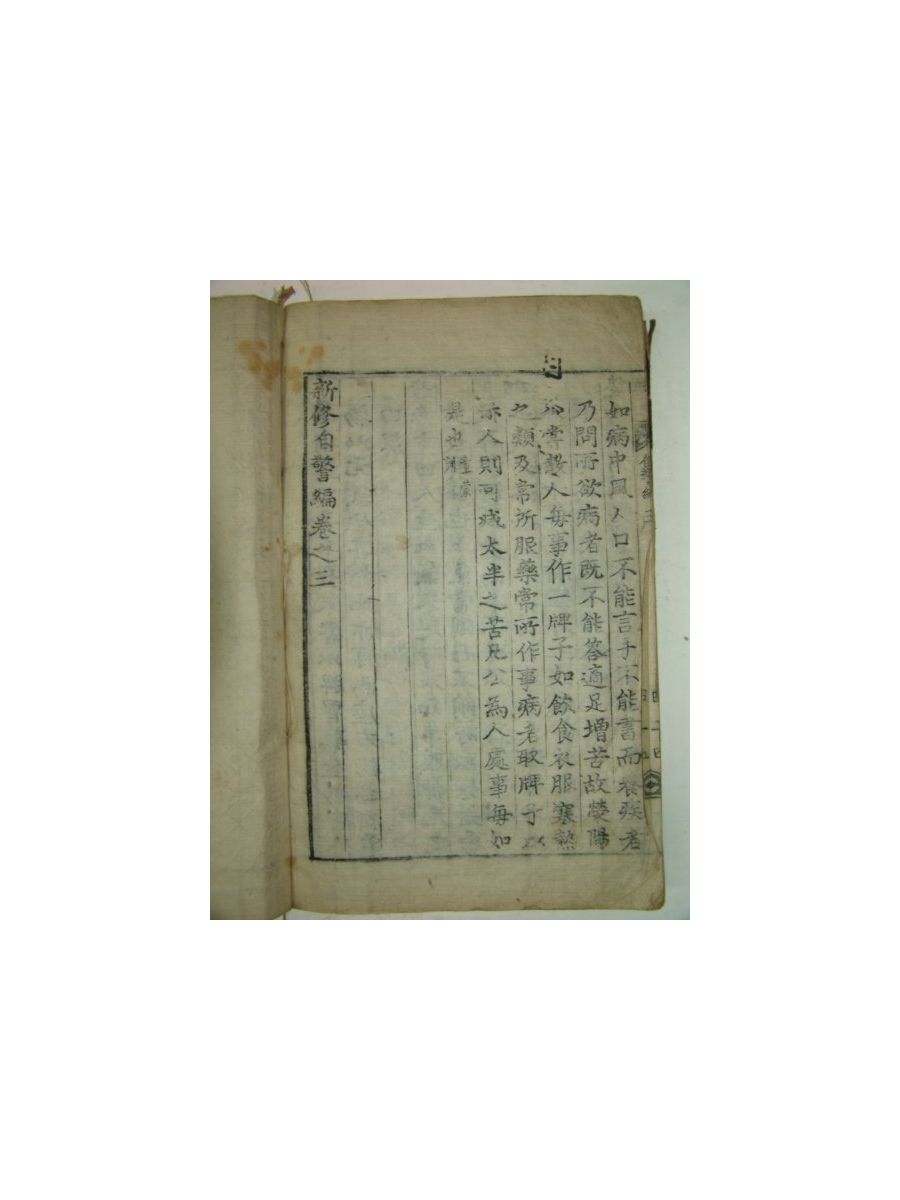 如病中風人口不能言手不能書而養疾者
乃問所欲病者既不能答適足增苦故滎陽
公嘗教人每事作一牌子如飲食衣服寒熱
之類及常所服藥常所作事病者取牌子以
示人則可減太半之苦凡公為人處事每如
是也
新修自警編卷之三